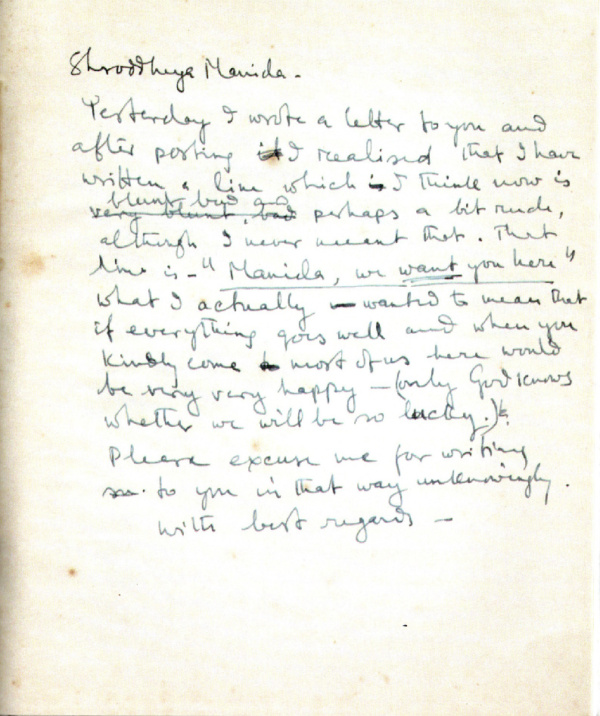 Shroddheya Manida -
Yesterday I wrote a letter to you and
after posting it I realised that I have
written a line which is I think now is
blunt, bad and
very blunt, bad perhaps a bit rude,
although I never meant that. That
line is - "Manida, we want you here"
what I actually wanted to mean that
if everything goes well and when you
kindly come to most of us here would
be very very happy - (only God knows
whether we will be so lucky.)
Please excuse me for writing
to you in that way unknowingly.
with best regards -